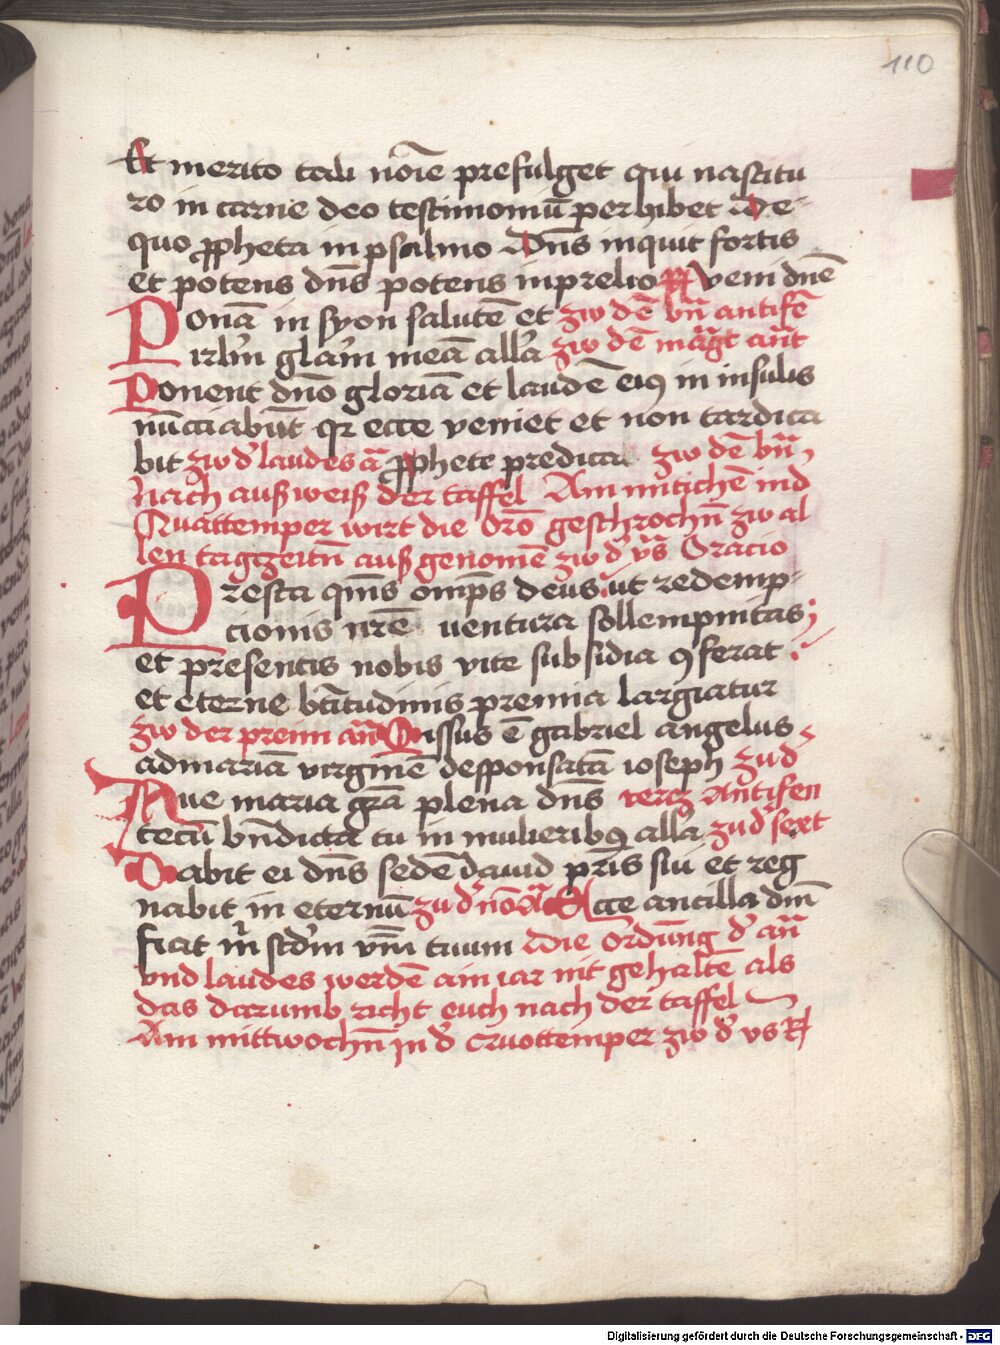 110
Et merito tali noīe prefulget qui nascitu
ro in carne deo testimoniū perhibet De
quo ꝓpheta in psalmo Dn̄s inquit fortis
et potens dn̄s potens in prelio R Veni dn̄e
Ponā in syon salutē et zw dē bn̄ antifē
irl̄m gl̄am meā all̄a zw dē maḡt an̄t
Ponent dn̄o gloriā et laudē eiꝯ in insulis
nūcciabūt qꝛ ecce veniet et non tardica
bit zw d̄ laudes ā ꝓphete predica zw dē bn̄
nach auß weiß der taffel Am mitichē in d
Quattemper wirt die Orō geschrochn̄ zw al
len tagtzeitn̄ auß genomē zw d̄ v̄s Oracio
Presta qm̄s omp̄s deus ut redemp
cionis nr̄e ventura sollempnitas
et presentis nobis vite subsidia ꝯferat
et eterne bt̄itudinis premia largiatur
zw der preim an̄ Missus ē gabriel angelus
ad mariā virginē desponsatā ioseph zu d̄
Aue maria gr̄a plena dn̄s tertz Antifen
tecū bn̄dicta tu in mulieribꝯ all̄a zu d̄ sext
Dabit ei dn̄s sedē dauid pr̄is sui et reg
nabit in eternū zu d̄ nō ā Ecce ancilla dn̄i
fiat m̄ scd̄m vm̄ tuum Die Ordūng d̄ an̄
vnd laudes werdē ain iar nit gehaltē als
das darumb richt euch nach der taffel
Am mittwochn̄ in d̄ Cruottemper zw d̄ vs R
Digitalisierung gefördert durch die Deutsche Forschungsgemeinschaft - DFG